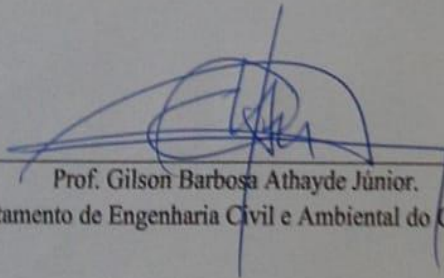 Prof. Gilson Barbosa Athayde Júnior.
tamento de Engenharia Civil e Ambiental do